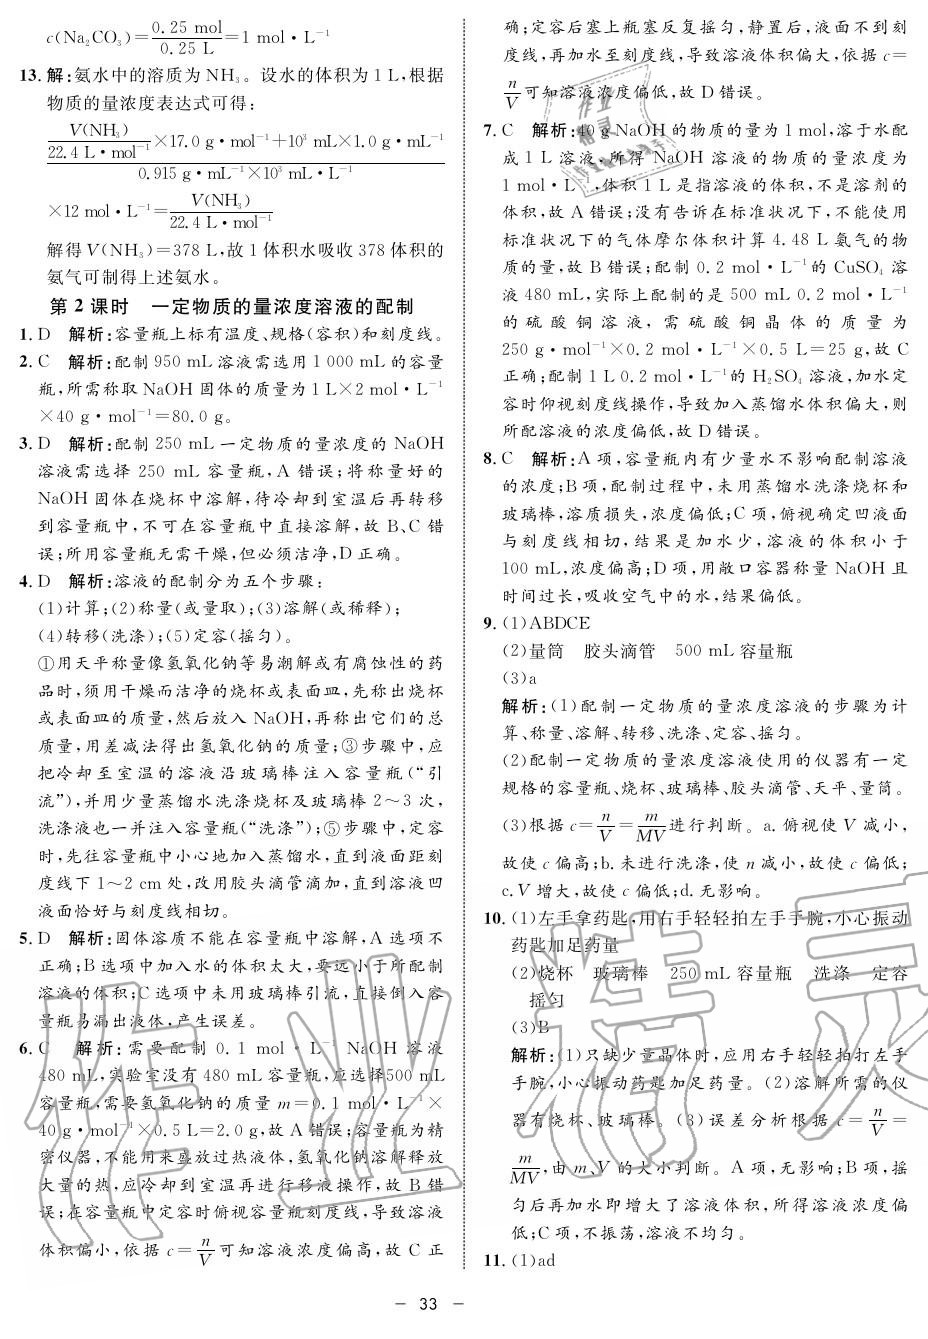 c(Na₂CO₃)=0.25 mol/0.25 L=1 mol·L⁻¹
13. 解:氨水中的溶质为NH₃。设水的体积为1 L,根据
物质的量浓度表达式可得:
V(NH₃)/22.4 L·mol⁻¹×17.0 g·mol⁻¹+10³ mL×1.0 g·mL⁻¹
0.915 g·mL⁻¹×10³ mL·L⁻¹
×12 mol·L⁻¹=V(NH₃)/22.4 L·mol⁻¹
解得V(NH₃)=378 L,故1体积水吸收378体积的
氨气可制得上述氨水。
第2课时 一定物质的量浓度溶液的配制
1. D 解析:容量瓶上标有温度、规格(容积)和刻度线。
2. C 解析:配制950 mL溶液需选用1 000 mL的容量
瓶,所需称取NaOH固体的质量为1 L×2 mol·L⁻¹
×40 g·mol⁻¹=80.0 g。
3. D 解析:配制250 mL一定物质的量浓度的NaOH
溶液需选择250 mL容量瓶,A错误;将称量好的
NaOH固体在烧杯中溶解,待冷却到室温后再转移
到容量瓶中,不可在容量瓶中直接溶解,故B、C错
误;所用容量瓶无需干燥,但必须洁净,D正确。
4. D 解析:溶液的配制分为五个步骤:
(1)计算;(2)称量(或量取);(3)溶解(或稀释);
(4)转移(洗涤);(5)定容(摇匀)。
①用天平称量像氢氧化钠等易潮解或有腐蚀性的药
品时,须用干燥而洁净的烧杯或表面皿,先称出烧杯
或表面皿的质量,然后放入NaOH,再称出它们的总
质量,用差减法得出氢氧化钠的质量;③步骤中,应
把冷却至室温的溶液沿玻璃棒注入容量瓶(“引
流”),并用少量蒸馏水洗涤烧杯及玻璃棒2~3次,
洗涤液也一并注入容量瓶(“洗涤”);⑤步骤中,定容
时,先往容量瓶中小心地加入蒸馏水,直到液面距刻
度线下1~2 cm处,改用胶头滴管滴加,直到溶液凹
液面恰好与刻度线相切。
5. D 解析:固体溶质不能在容量瓶中溶解,A选项不
正确;B选项中加入水的体积太大,要远小于所配制
溶液的体积;C选项中未用玻璃棒引流,直接倒入容
量瓶易漏出液体,产生误差。
6. C 解析:需要配制0.1 mol·L⁻¹ NaOH溶液
480 mL,实验室没有480 mL容量瓶,应选择500 mL
容量瓶,需要氢氧化钠的质量m=0.1 mol·L⁻¹×
40 g·mol⁻¹×0.5 L=2.0 g,故A错误;容量瓶为精
密仪器,不能用来盛放过热液体,氢氧化钠溶解释放
大量的热,应冷却到室温再进行移液操作,故B错
误;在容量瓶中定容时俯视容量瓶刻度线,导致溶液
体积偏小,依据c=n/V可知溶液浓度偏高,故C正
确;定容后塞上瓶塞反复摇匀,静置后,液面不到刻
度线,再加水至刻度线,导致溶液体积偏大,依据c=
n/V可知溶液浓度偏低,故D错误。
7. C 解析:40 g NaOH的物质的量为1 mol,溶于水配
成1 L溶液,所得NaOH溶液的物质的量浓度为
1 mol·L⁻¹,体积1 L是指溶液的体积,不是溶剂的
体积,故A错误;没有告诉在标准状况下,不能使用
标准状况下的气体摩尔体积计算4.48 L氨气的物
质的量,故B错误;配制0.2 mol·L⁻¹的CuSO₄溶
液480 mL,实际上配制的是500 mL 0.2 mol·L⁻¹
的硫酸铜溶液,需硫酸铜晶体的质量为
250 g·mol⁻¹×0.2 mol·L⁻¹×0.5 L=25 g,故C
正确;配制1 L 0.2 mol·L⁻¹的H₂SO₄溶液,加水定
容时仰视刻度线操作,导致加入蒸馏水体积偏大,则
所配溶液的浓度偏低,故D错误。
8. C 解析:A项,容量瓶内有少量水不影响配制溶液
的浓度;B项,配制过程中,未用蒸馏水洗涤烧杯和
玻璃棒,溶质损失,浓度偏低;C项,俯视确定凹液面
与刻度线相切,结果是加水少,溶液的体积小于
100 mL,浓度偏高;D项,用敞口容器称量NaOH且
时间过长,吸收空气中的水,结果偏低。
9. (1)ABDCE
(2)量筒 胶头滴管 500 mL容量瓶
(3)a
解析:(1)配制一定物质的量浓度溶液的步骤为计
算、称量、溶解、转移、洗涤、定容、摇匀。
(2)配制一定物质的量浓度溶液使用的仪器有一定
规格的容量瓶、烧杯、玻璃棒、胶头滴管、天平、量筒。
(3)根据c=n/V=m/MV进行判断。a. 俯视使V减小,
故使c偏高;b. 未进行洗涤,使n减小,故使c偏低;
c. V增大,故使c偏低;d. 无影响。
10. (1)左手拿药匙,用右手轻轻拍左手手腕,小心振动
药匙加足药量
(2)烧杯 玻璃棒 250 mL容量瓶 洗涤 定容
摇匀
(3)B
解析:(1)只缺少量晶体时,应用右手轻轻拍打左手
手腕,小心振动药匙加足药量。(2)溶解所需的仪
器有烧杯、玻璃棒。(3)误差分析根据c=n/V=
m/MV,由m、V的大小判断。A项,无影响;B项,摇
匀后再加水即增大了溶液体积,所得溶液浓度偏
低;C项,不振荡,溶液不均匀。
11. (1)ad
作业精灵
— 33 —